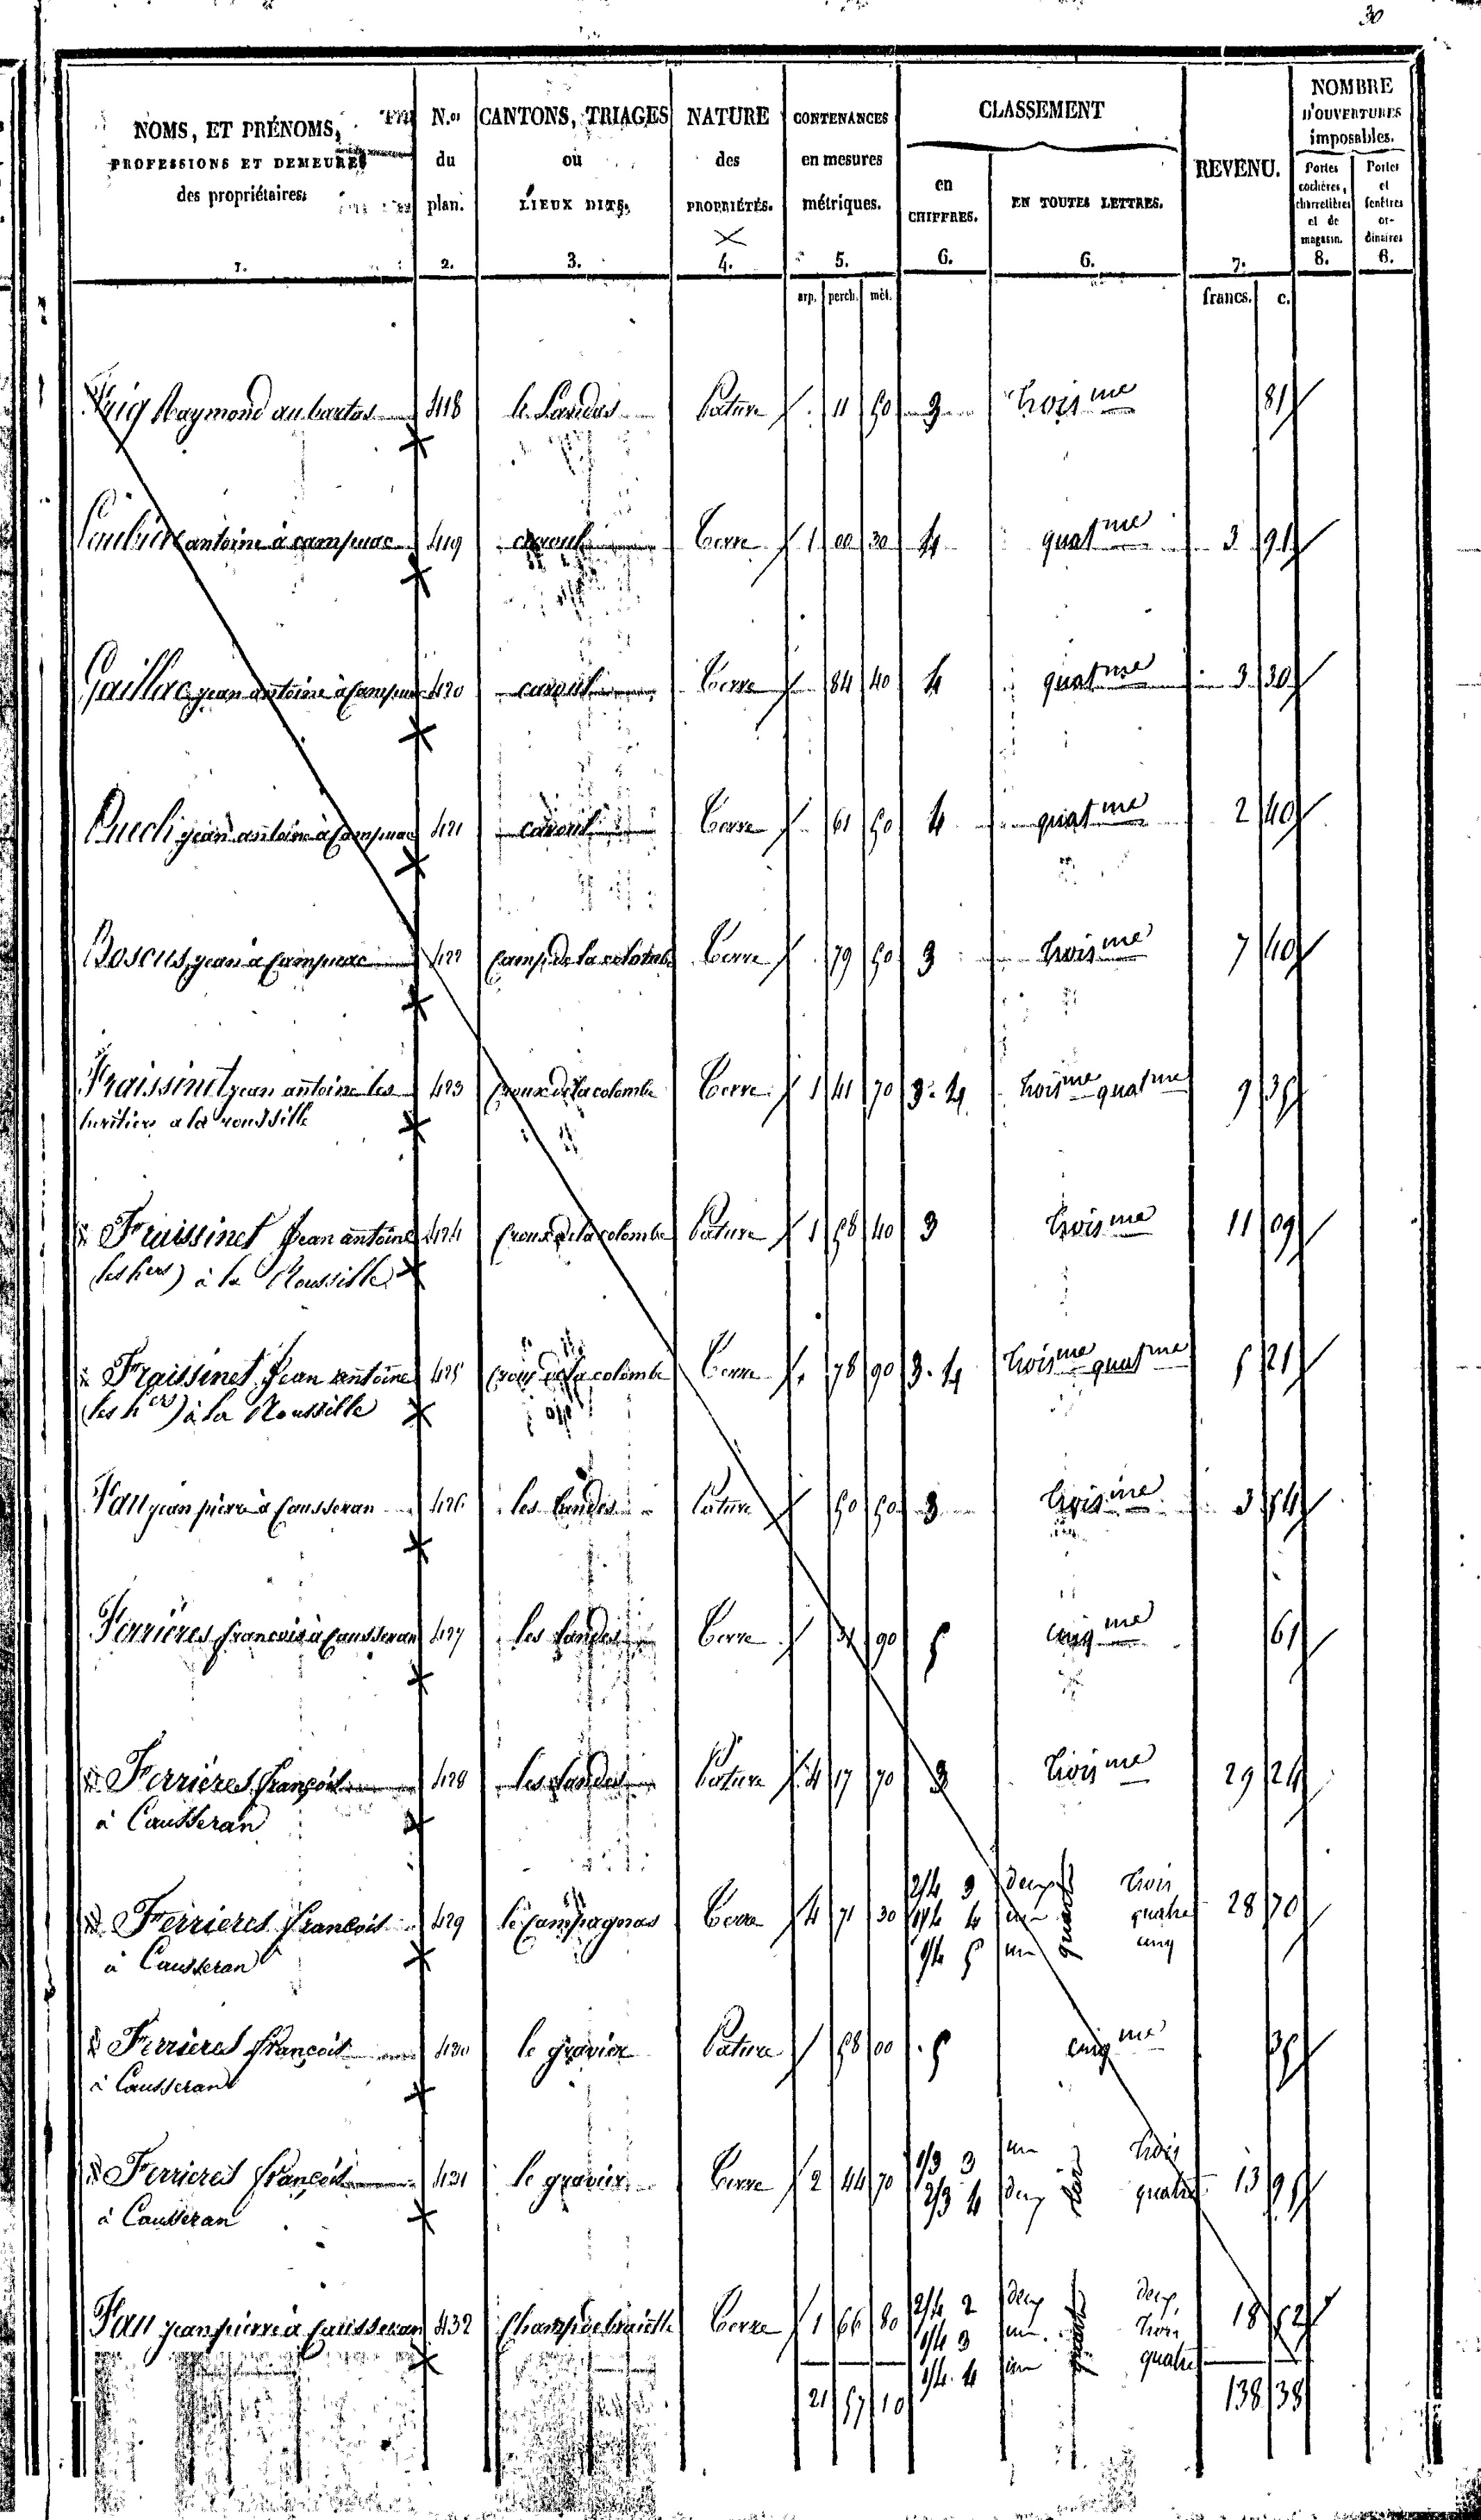 30
NOMS, ET PRÉNOMS, PROFESSIONS ET DEMEURES des propriétaires. 1.
N.os du plan. 2.
CANTONS, TRIAGES ou LIEUX DITS. 3.
NATURE des PROPRIÉTÉS. 4.
CONTENANCES en mesures métriques. 5.
CLASSEMENT
en CHIFFRES. 6.
EN TOUTES LETTRES. 6.
REVENU. 7.
NOMBRE D'OUVERTURES imposables.
Portes cochères, charretières et de magasin. 8.
Portes et fenêtres ordinaires 8.
arp. perch. mèt. francs. c.
Raymond au bartas 418 Pature 11 50 3 trois me 81
antoine à campuac 419 Terre 1 00 30 4 quat me 3 91
Gaillac jean antoine à Campuac 420 Terre 84 40 4 quat me 3 30
Puech jean antoine à Campuac 421 Terre 61 50 4 quat me 2 40
Boscus, jean à Campuac 422 Camp de la colombe Terre 79 50 3 trois me 7 40
Fraissinet jean antoine les 423 croux de la colombe Terre 1 41 70 3. 4 trois me quat me 9 35
heritiers a la roussille
Fraissinet Jean antoine 424 croux de la colombe Pature 1 58 40 3 trois me 11 09
(les hers) à la Roussille
Fraissinet Jean antoine 425 croux de la colombe Terre 78 90 3. 4 trois me quat me 5 21
(les hers) à la Roussille
Fau jean pierre à Causseran 426 les landes Pature 50 50 3 trois me 3 54
Ferrières francois à Causseran 427 les landes Terre 90 5 cinq me 61
Ferrières françois 428 les landes Pature 4 17 70 3 trois me 29 24
à Causseran
Ferrieres francois 429 le Campagnas Terre 4 71 30 2/4 3 deux quarts trois 28 70
à Causseran 1/4 4 un quatre
1/4 5 un cinq
Ferrières françois 430 le gravier Pature 58 00 5 cinq me 35
à Causseran
Ferrieres françois 431 le gravier Terre 2 44 70 1/3 3 un tiers trois 13 95
à Causseran 2/3 4 deux quatre
Fau jean pierre à Causseran 432 Terre 1 66 80 2/4 2 deux quarts deux 18 52
1/4 3 un trois
1/4 4 un quatre
21 57 10 138 38